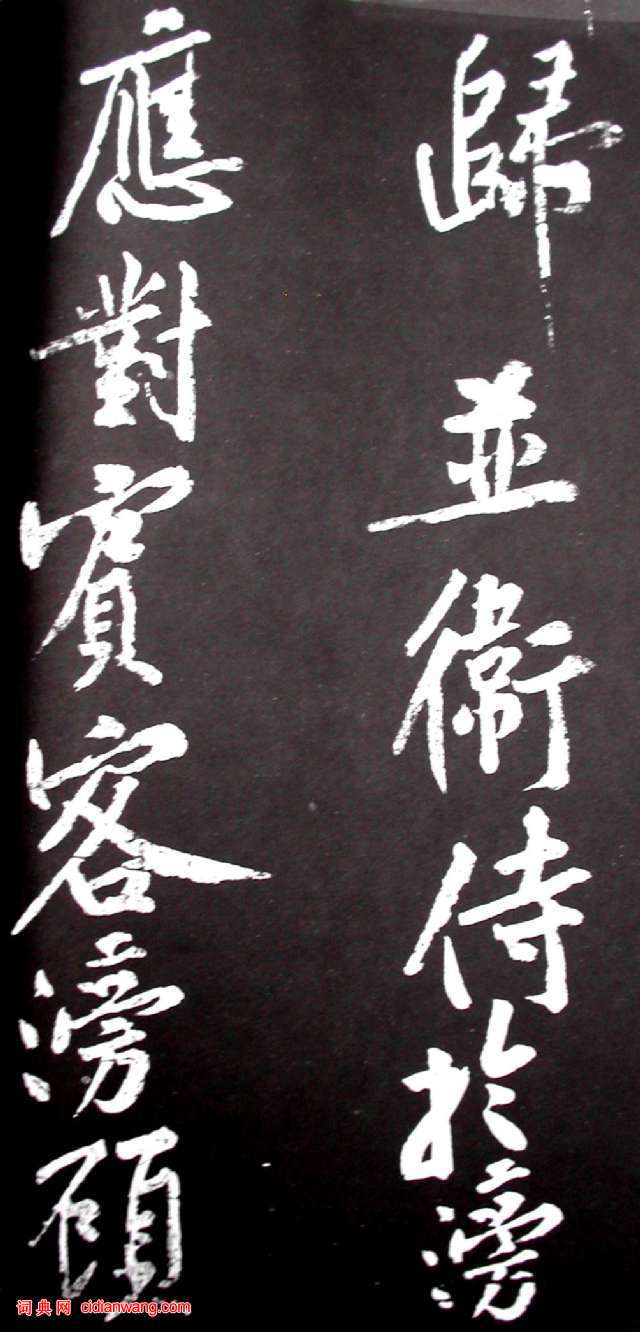 歸並衛侍於滂
應對賓客滂顧
词典网 cidianwang.com